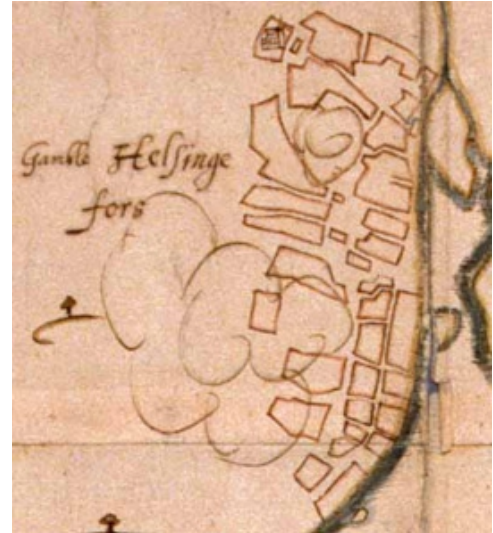 Gamble Helsinge
fors